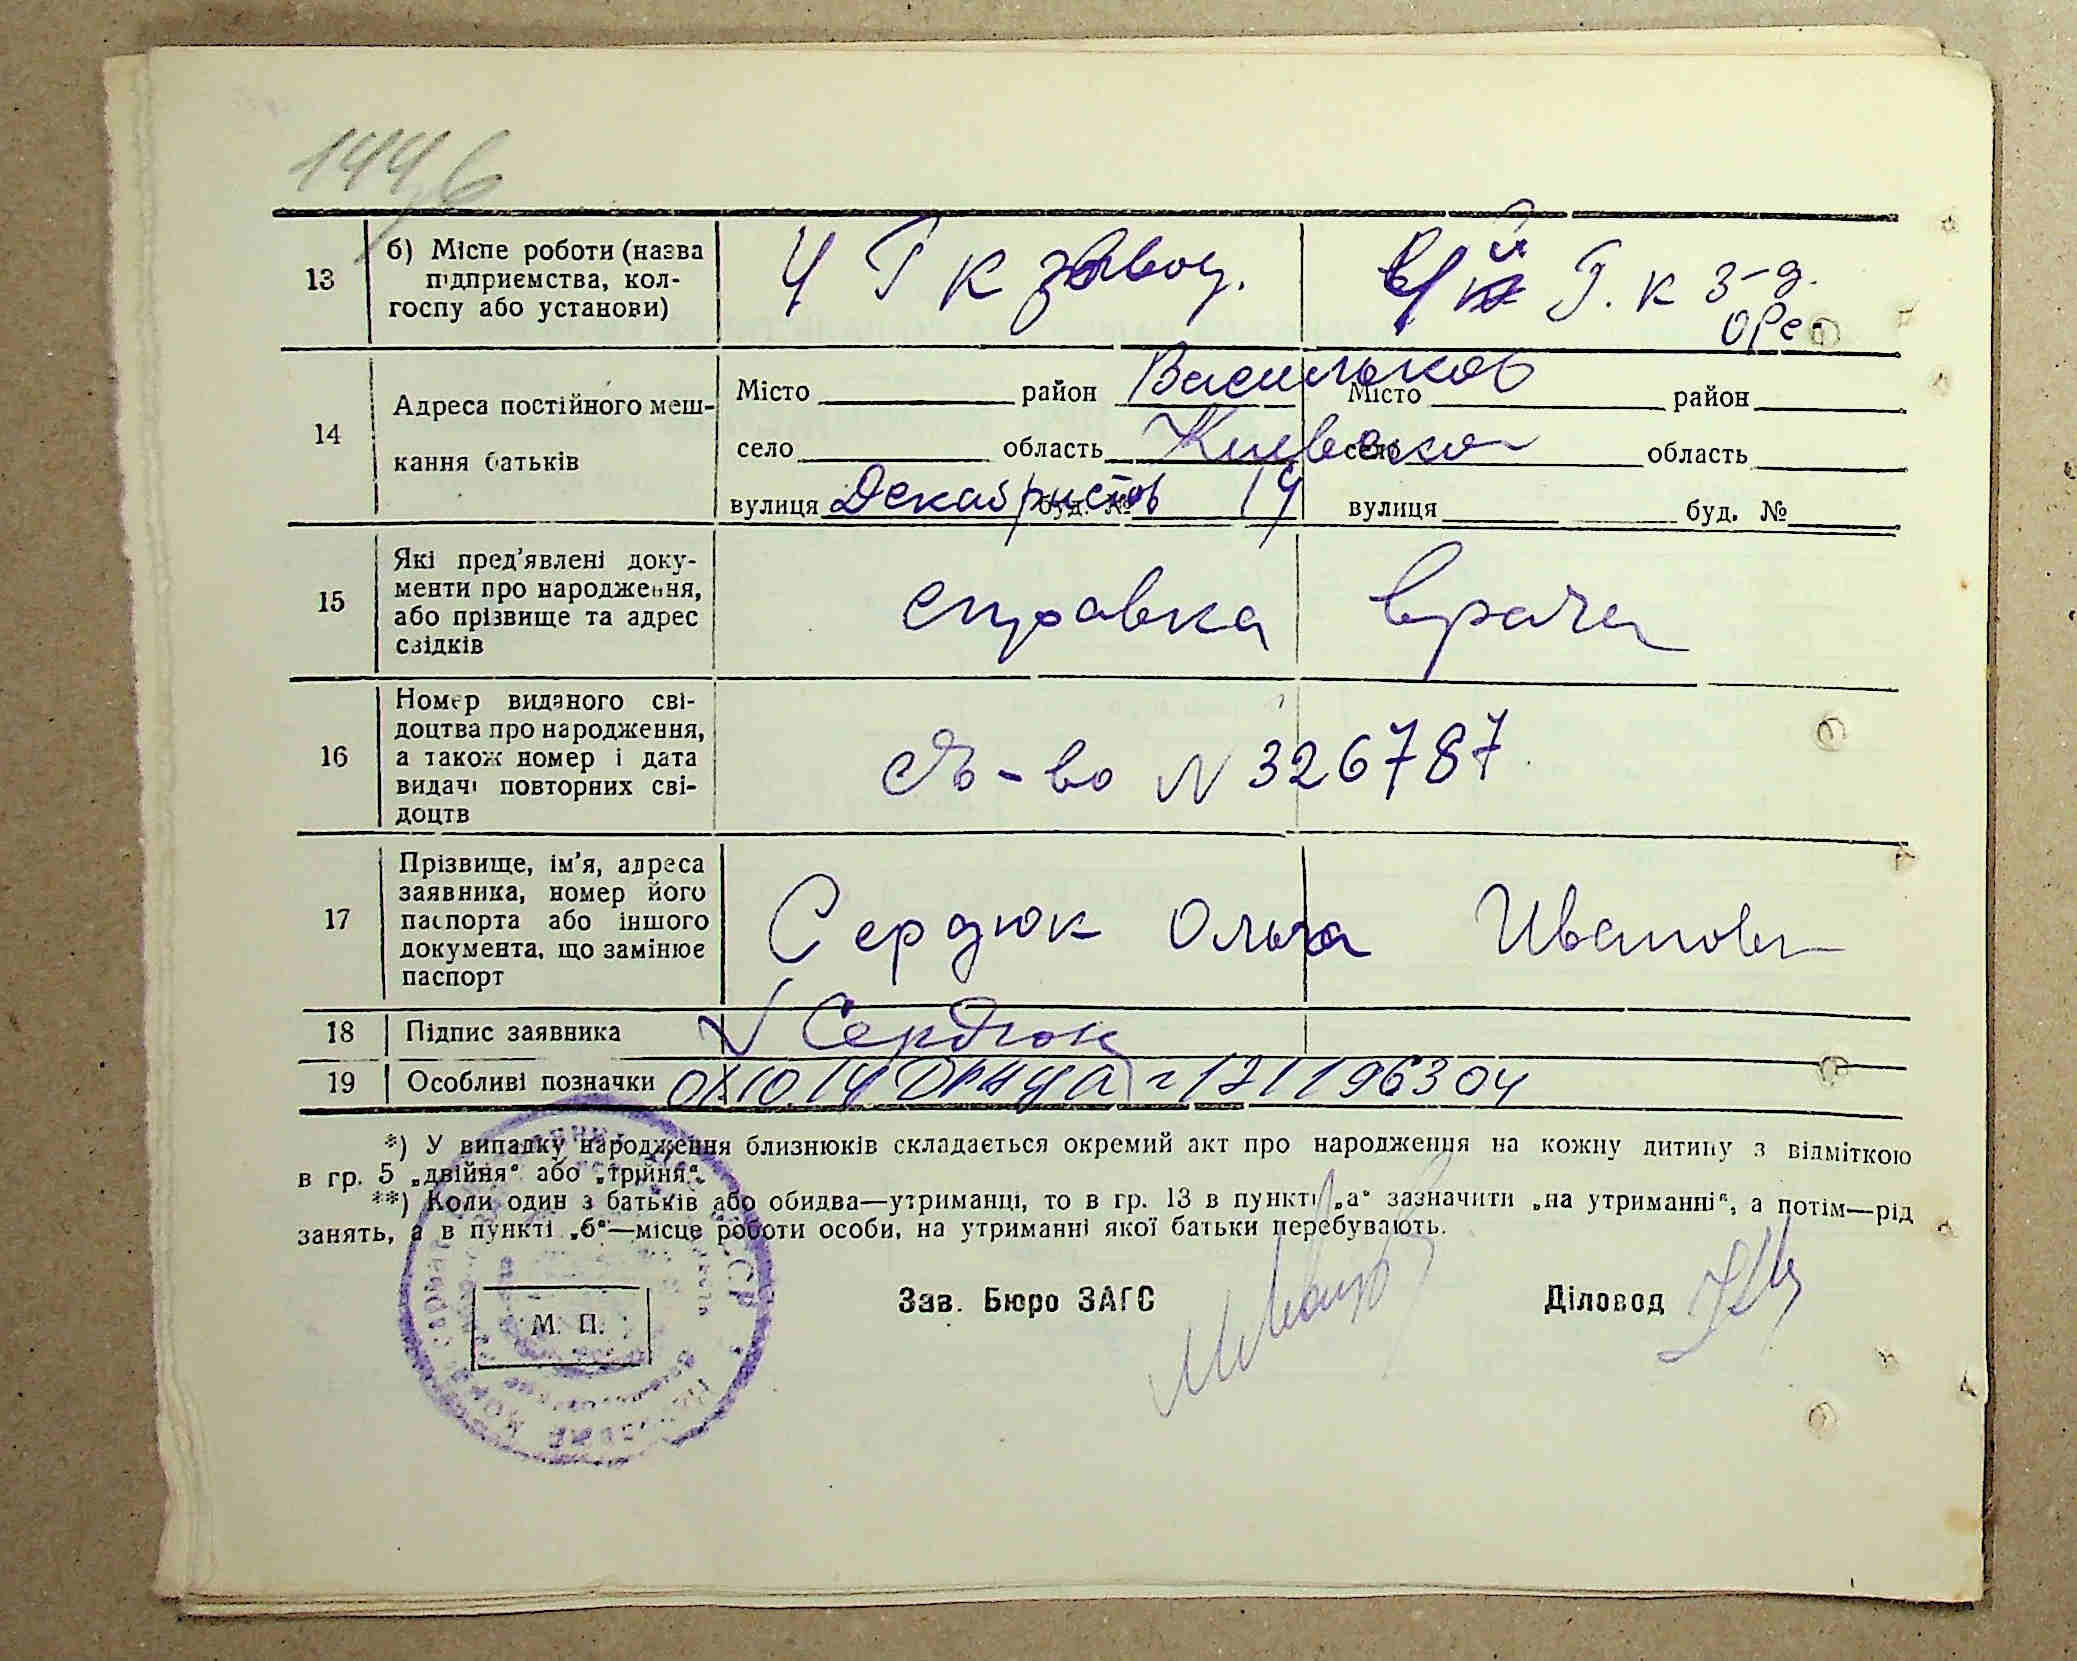 1446
13
б) Місце роботи (назва
підприємства, кол-
госпу або установи)
Ч Г к завод.
Г. к з-д.
14
Адреса постійного меш-
кання батьків
Місто район Васильков
село область Киевская
вулиця Декабристов буд. № 14
Місто район
село область
вулиця буд. №
15
Які пред'явлені доку-
менти про народження,
або прізвище та адрес
свідків
справка врача
16
Номер виданого сві-
доцтва про народження,
а також номер і дата
видачі повторних сві-
доцтв
Св-во N 326787
17
Прізвище, ім'я, адреса
заявника, номер його
паспорта або іншого
документа, що замінює
паспорт
Сердюк Ольга Ивановн
18
Підпис заявника
V Сердюк
19
Особливі позначки
*) У випадку народження близнюків складається окремий акт про народження на кожну дитину з відміткою
в гр. 5 „двійня“ або „трійня“.
**) Коли один з батьків або обидва—утриманці, то в гр. 13 в пункті „а“ зазначити „на утриманні“, а потім—рід
занять, а в пункті „б“—місце роботи особи, на утриманні якої батьки перебувають.
М. П.
Зав. Бюро ЗАГС
Діловод